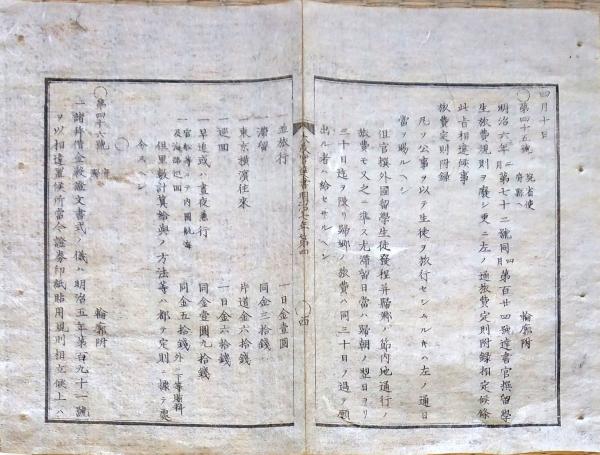 四月十日
〇第四十五號 院省使府縣ヘ 輪廓附
明治六年二月第七十二號同四月第百廿四號達書官撰留學
生旅費規則ヲ廢シ更ニ左ノ通旅費定則附録相定候條
此旨相達候事
旅費定則附録
凡ソ公事ヲ以テ生徒ヲ旅行セシムルキハ左ノ通日
當ヲ賜ルヘシ
但官撰外國留學生徒發程并歸郷ノ節内地通行ノ
旅費モ又之ニ準ス尤滞留日當ハ歸朝ノ翌日ヨリ
三十日迄ヲ限リ歸郷ノ旅費ハ同三十日ヲ過テ願
出ル者ハ給セサルヘシ
明治七年第四
〇四
一並旅行 一日金壹圓
一滞留 同金三拾錢
一東京横濱往來 片道金六拾錢
一巡回 一日金六拾錢
一早追或ハ晝夜兼行 同金壹圓九拾錢
一官船等ニテ内國航海及海路巡回 同金五拾錢 外ニ下等賄料
但里數計算給與ノ方法等ハ都テ定則ニ據テ處
分スヘシ
〇第四十六號 府縣 輪廓附
一諸拜借金穀證文書式ノ儀ハ明治五年第百九十一號
ヲ以相達置候所當今證券印紙貼用規則相立候上ハ